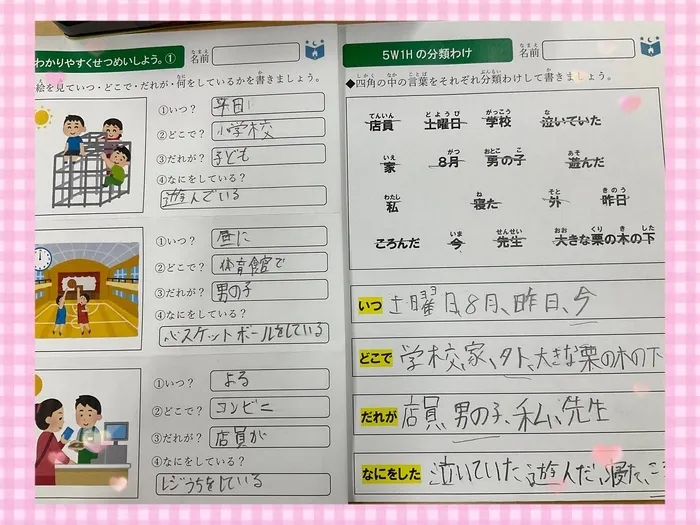 わかりやすくせつめいしよう。①
なまえ
名前
絵を見ていつ・どこで・だれが・何をしているかを書きましょう。
①いつ? 平日に
②どこで? 小学校
③だれが? 子ども
④なにをしている?
遊んでいる
①いつ? 昼に
②どこで? 体育館で
③だれが? 男の子
④なにをしている?
バスケットボールをしている
①いつ? よる
②どこで? コンビニ
③だれが? 店員が
④なにをしている?
レジうちをしている
5W1Hの分類わけ
なまえ
名前
◆四角の中の言葉をそれぞれ分類わけして書きましょう。
てんいん どようび がっこう な
店員 土曜日 学校 泣いていた
いえ がつ おとこ こ あそ
家 8月 男の子 遊んだ
わたし ね そと きのう
私 寝た 外 昨日
いま せんせい おお くり き した
ころんだ 今 先生 大きな栗の木の下
いつ 土曜日、8月、昨日、今
どこで 学校、家、外、大きな栗の木の下
だれが 店員、男の子、私、先生
なにをした 泣いていた、遊んだ、寝た、こ